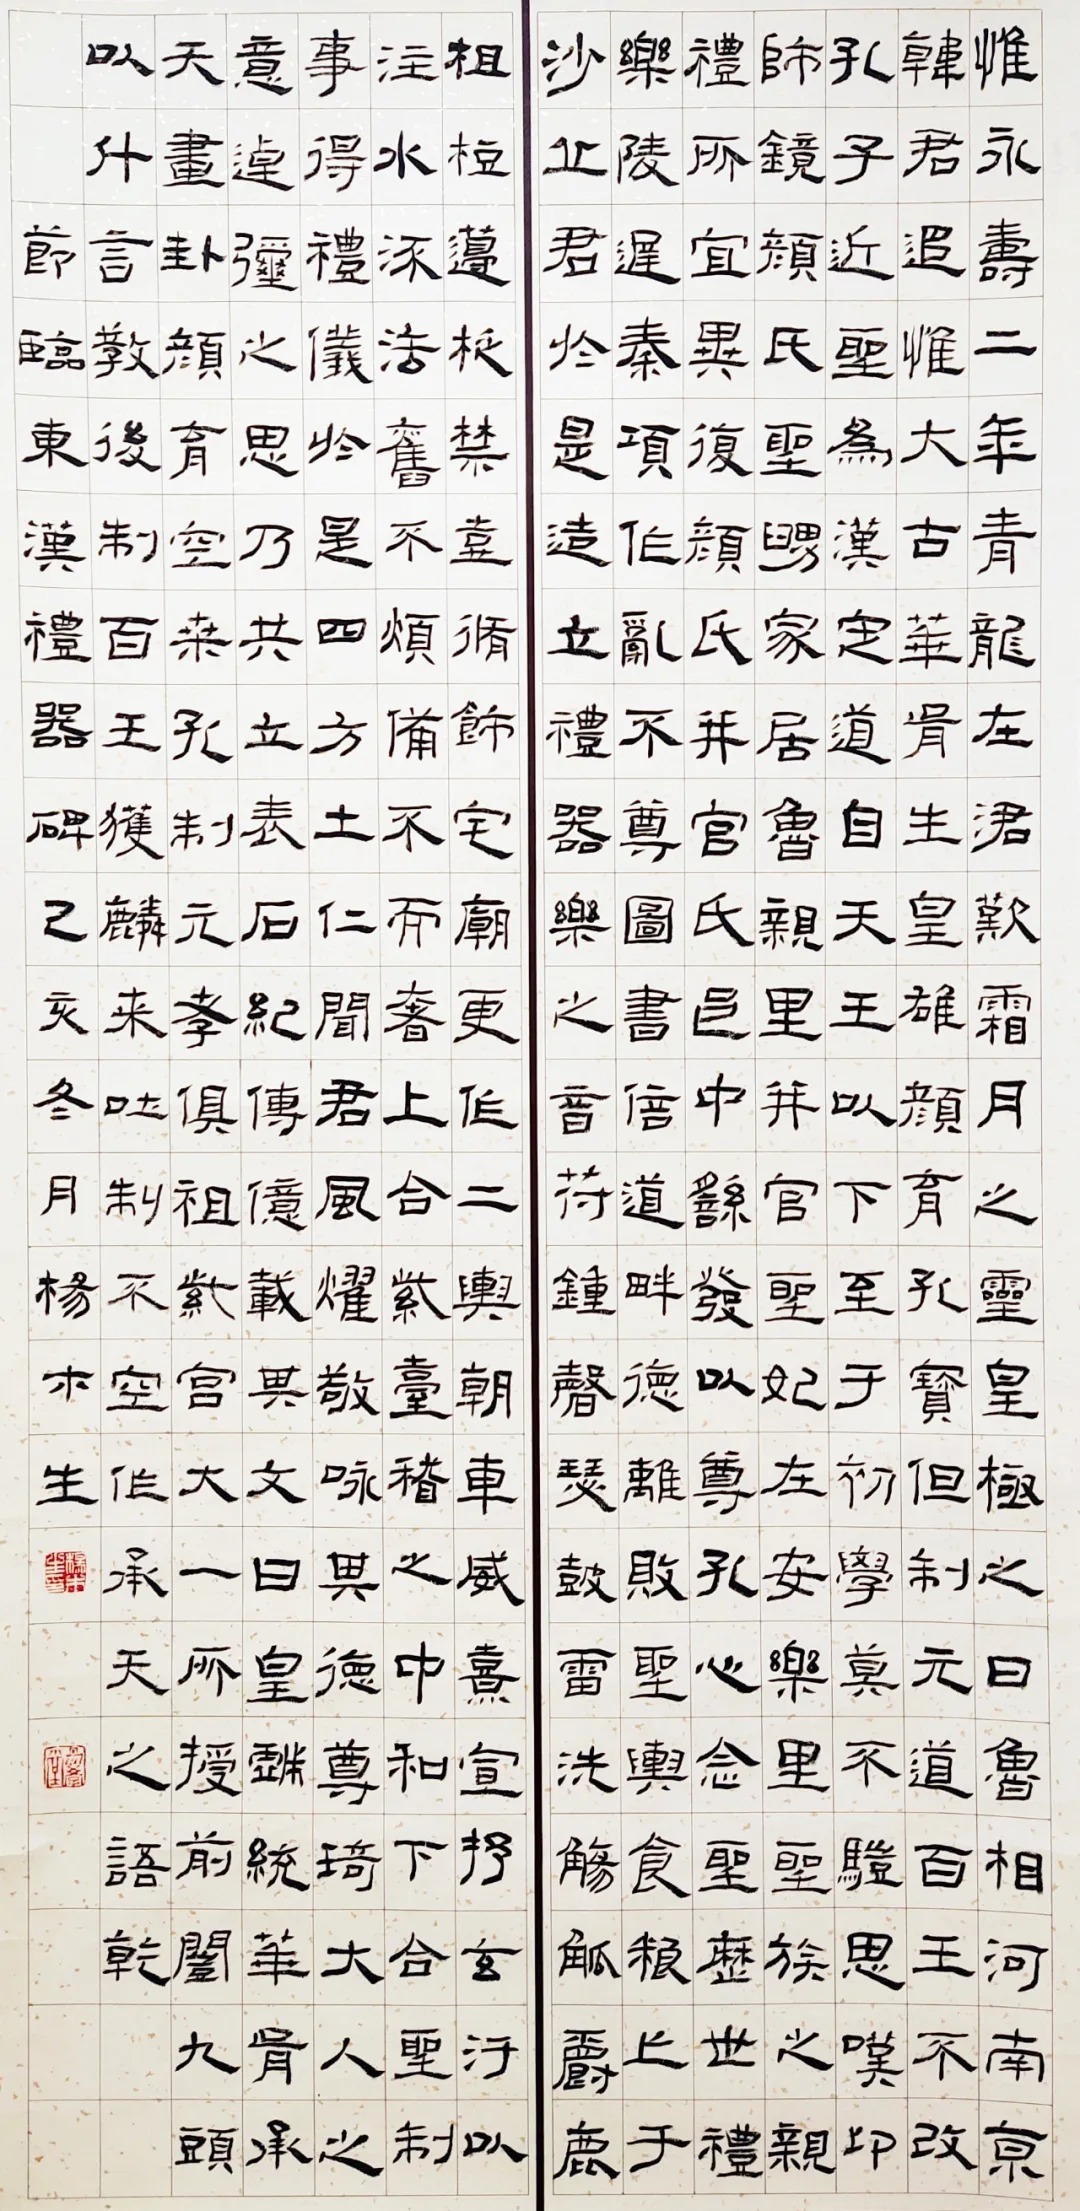 惟永壽二年青龍在涒歎霜月之靈皇極之日魯相河南京
韓君追惟大古華胥生皇雄顏育孔寶但制元道百王不改
孔子近聖為漢定道自天王以下至于初學莫不䮗思嘆卬
師鏡顏氏聖舅家居魯親里并官聖妃在安樂里聖族之親
禮所宜異復顏氏并官氏邑中繇發以尊孔心念聖歷世禮
樂陵遲秦項作亂不尊圖書倍道畔德離敗聖輿食糧亡于
沙丘君於是造立禮器樂之音符鍾磬瑟鼓雷洗觴觚爵鹿
柤梪籩柉禁壺脩飾宅廟更作二輿朝車威熹宣抒玄汙以
注水流法舊不煩備不而奢上合紫臺稽之中和下合聖制
事得禮儀於是四方土仁聞君風燿敬咏其德尊琦大人之
意逴彌之思乃共立表石紀傳億載其文曰皇戲統華胥承
天畫卦顏育空桑孔制元孝俱祖紫宮大一所授前闓九頭
以什言教後制百王獲麟來吐制不空作承天之語乾
節臨東漢禮器碑己亥冬月楊木生